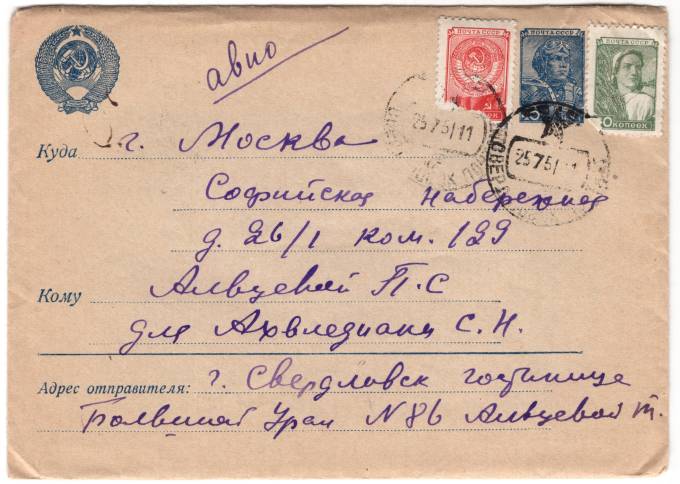 авио
ПОЧТА СССР
ПОЧТА СССР
ПОЧТА СССР
КОПЕЕК
25 7 51 11
25 7 51 11
Куда г. Москва
Софийская набережная
д. 26/1 ком. 129
Кому Альцевой П.С
для Ахвледиани С.Н.
Адрес отправителя: г. Свердловск гостинице
Большой Урал N 86 Альцевой т.